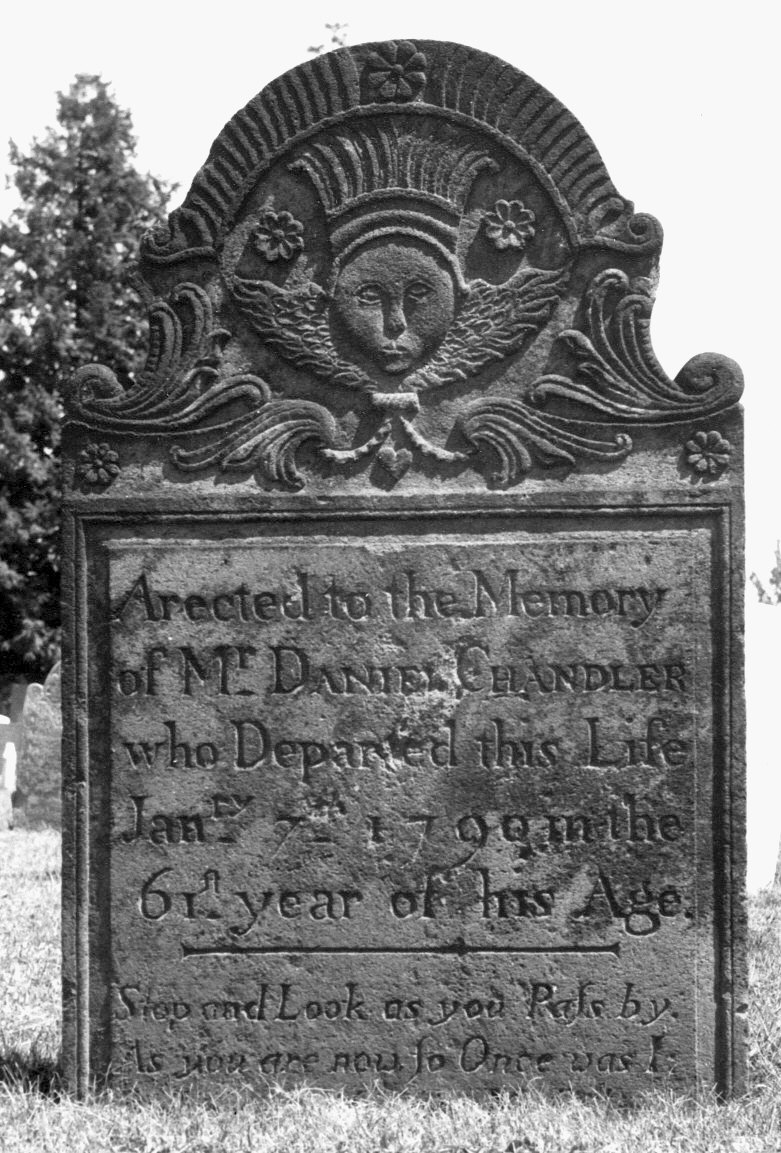 Arected to the Memory
of Mr. DANIEL CHANDLER
who Departed this Life
Janry. 7th. 1790 in the
61st. year of his Age.
Stop and Look as you Paſs by.
As you are now ſo Once was I;